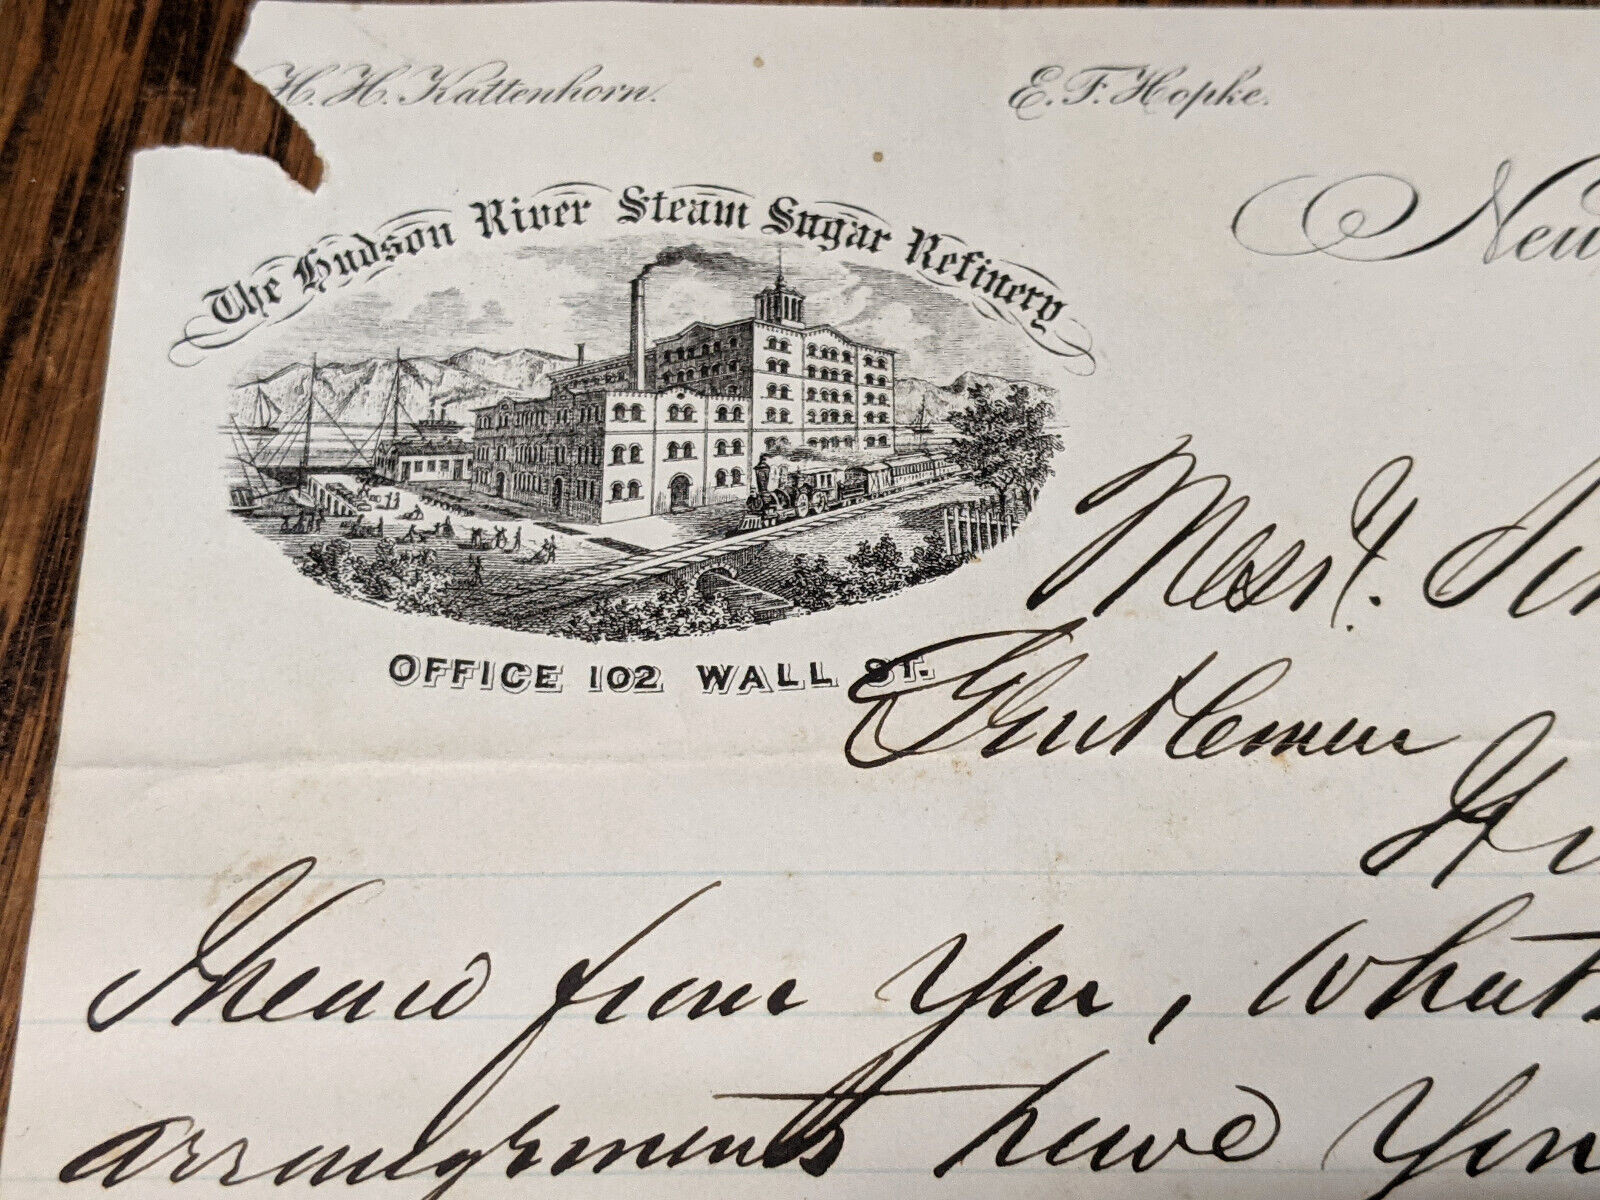 H. H. Kattenhorn. E. F. Hopke.
The Hudson River Steam Sugar Refinery
New
OFFICE 102 WALL ST.
Messrs.
Gentlemen
heard from you, what
arrangements have you